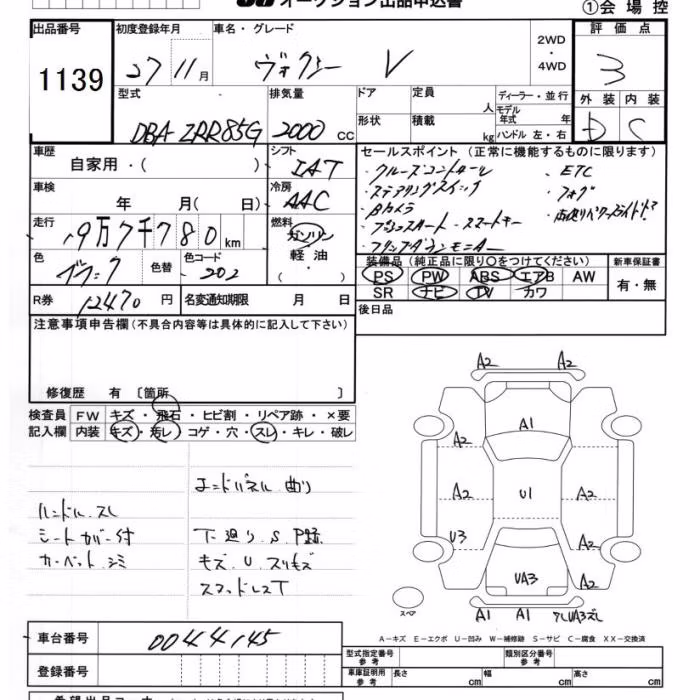 オークション出品申込書
①会場控
出品番号 初度登録年月 車名・グレード 評価点
1139 27 11月 ヴォクシー V 2WD・4WD 3
型式 排気量 ドア 定員 人 ディーラー・並行 外装 内装
DBA ZRR85G 2000 CC 形状 積載 kg モデル年式 年 ハンドル 左・右 D C
車歴 シフト セールスポイント (正常に機能するものに限ります)
自家用・( ) IAT ・クルーズコントロール ・ETC
車検 冷房 ・ステアリングスイッチ ・フォグ
年 月( 日) AAC ・Bカメラ ・両側パワースライドドア
走行 燃料 ・プッシュスタート・スマートキー
19万7千780km ガソリン ・フリップダウンモニター
色 色替 色コード 軽油・ 装備品 (純正品に限り○をつけてください) 新車保証書
ブラック 202 ( ) PS PW ABS エアB AW 有・無
R券 12470円 名変通知期限 月 日 SR ナビ TV カワ
後日品
注意事項申告欄(不具合内容等は具体的に記入して下さい)
修復歴 有 〔箇所 〕
検査員 FW キズ・飛石・ヒビ割・リペア跡・×要
記入欄 内装 キズ・汚レ・コゲ・穴・スレ・キレ・破レ
エンドパネル曲り
ハンドルスレ
シートカバー付 下廻りS.P跡
カーペットシミ キズ.U.スリキズ
スペアレスT
A2 A2
A1
A2
A2 U1 A2
U3 A2
UA3 A2
スペア
A1 A1 UA3ズレ
A－キズ E－エクボ U－凹み W－補修跡 S－サビ C－腐食 XX－交換済
車台番号 0044145
型式指定番号 参考 類別区分番号 参考
登録番号 車庫証明用 参考 長さ cm 幅 cm 高さ cm